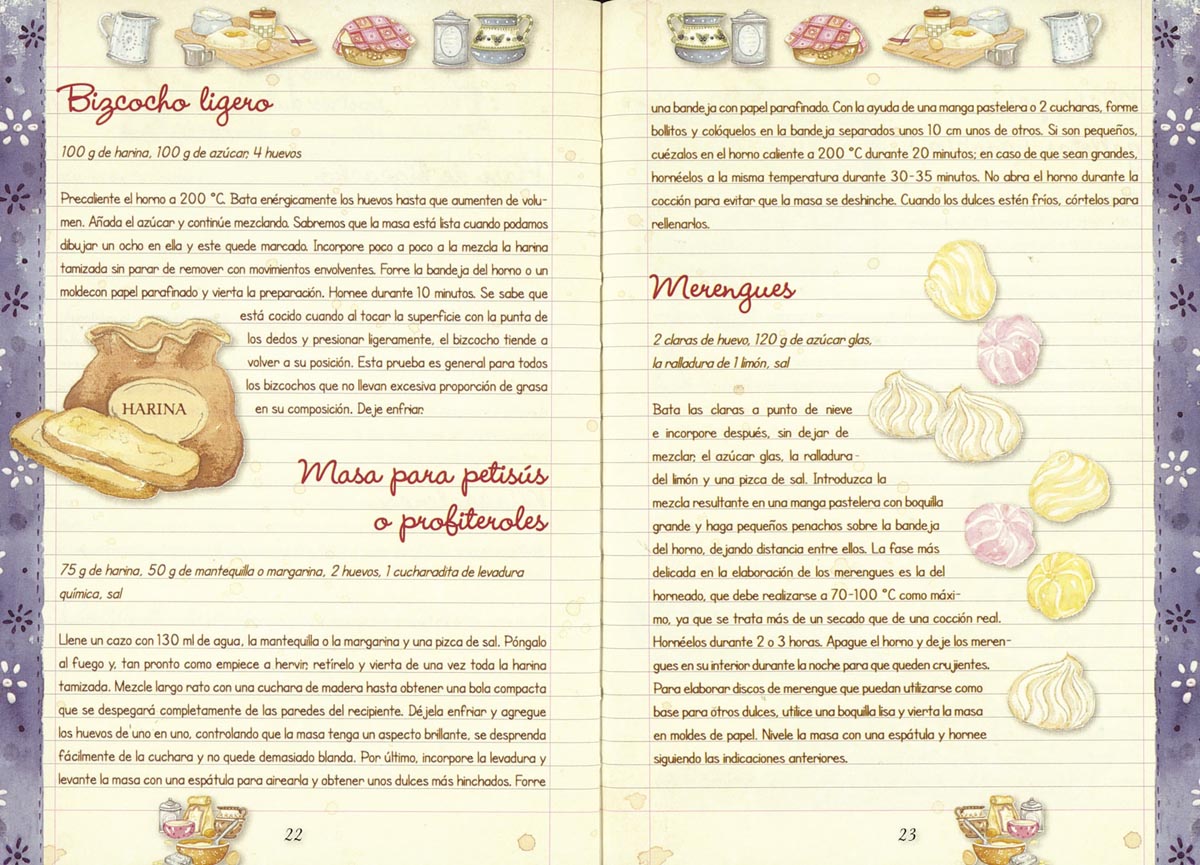 Bizcocho ligero
100 g de harina, 100 g de azúcar, 4 huevos
Precaliente el horno a 200 °C. Bata enérgicamente los huevos hasta que aumenten de volu-
men. Añada el azúcar y continúe mezclando. Sabremos que la masa está lista cuando podamos
dibujar un ocho en ella y este quede marcado. Incorpore poco a poco a la mezcla la harina
tamizada sin parar de remover con movimientos envolventes. Forre la bandeja del horno o un
moldecon papel parafinado y vierta la preparación. Hornee durante 10 minutos. Se sabe que
está cocido cuando al tocar la superficie con la punta de
los dedos y presionar ligeramente, el bizcocho tiende a
volver a su posición. Esta prueba es general para todos
los bizcochos que no llevan excesiva proporción de grasa
en su composición. Deje enfriar.
HARINA
Masa para petisús
o profiteroles
75 g de harina, 50 g de mantequilla o margarina, 2 huevos, 1 cucharadita de levadura
química, sal
Llene un cazo con 130 ml de agua, la mantequilla o la margarina y una pizca de sal. Póngalo
al fuego y, tan pronto como empiece a hervir, retírelo y vierta de una vez toda la harina
tamizada. Mezcle largo rato con una cuchara de madera hasta obtener una bola compacta
que se despegará completamente de las paredes del recipiente. Déjela enfriar y agregue
los huevos de uno en uno, controlando que la masa tenga un aspecto brillante, se desprenda
fácilmente de la cuchara y no quede demasiado blanda. Por último, incorpore la levadura y
levante la masa con una espátula para airearla y obtener unos dulces más hinchados. Forre
22
una bandeja con papel parafinado. Con la ayuda de una manga pastelera o 2 cucharas, forme
bollitos y colóquelos en la bandeja separados unos 10 cm unos de otros. Si son pequeños,
cuézalos en el horno caliente a 200 °C durante 20 minutos; en caso de que sean grandes,
hornéelos a la misma temperatura durante 30-35 minutos. No abra el horno durante la
cocción para evitar que la masa se deshinche. Cuando los dulces estén fríos, córtelos para
rellenarlos.
Merengues
2 claras de huevo, 120 g de azúcar glas,
la ralladura de 1 limón, sal
Bata las claras a punto de nieve
e incorpore después, sin dejar de
mezclar, el azúcar glas, la ralladura
del limón y una pizca de sal. Introduzca la
mezcla resultante en una manga pastelera con boquilla
grande y haga pequeños penachos sobre la bandeja
del horno, dejando distancia entre ellos. La fase más
delicada en la elaboración de los merengues es la del
horneado, que debe realizarse a 70-100 °C como máxi-
mo, ya que se trata más de un secado que de una cocción real.
Hornéelos durante 2 o 3 horas. Apague el horno y deje los meren-
gues en su interior durante la noche para que queden crujientes.
Para elaborar discos de merengue que puedan utilizarse como
base para otros dulces, utilice una boquilla lisa y vierta la masa
en moldes de papel. Nivele la masa con una espátula y hornee
siguiendo las indicaciones anteriores.
23